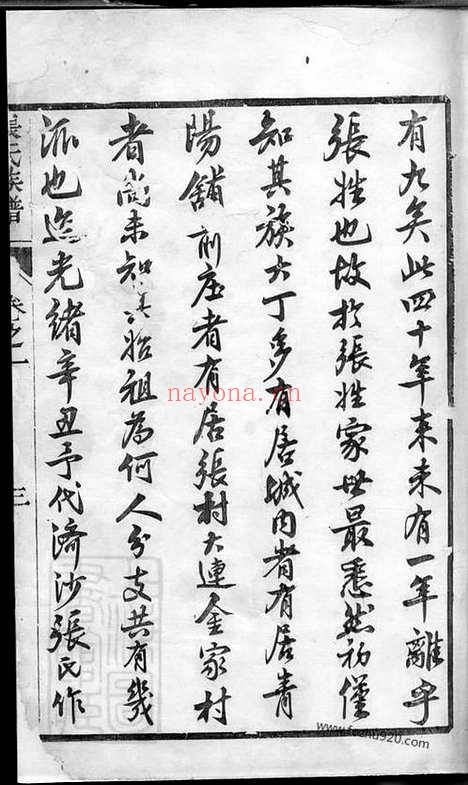 有九矣此四十年来未有一年離乎
張姓也故於張姓家世最悉然初僅
知其族大丁多有居城内者有居青
陽舖前庄者有居張村大連金家村
者尚未知其始祖為何人分支共有幾
派也迄光緒辛丑予代濟沙張氏作
張氏族譜
卷之一
三
nayona.cn
www.foxzhu920.com